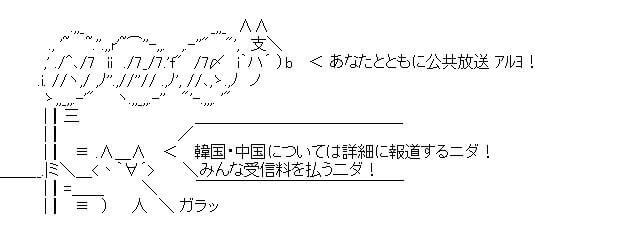 支
あなたとともに公共放送 アルヨ！
韓国・中国については詳細に報道するニダ！
みんな受信料を払うニダ！
ガラッ